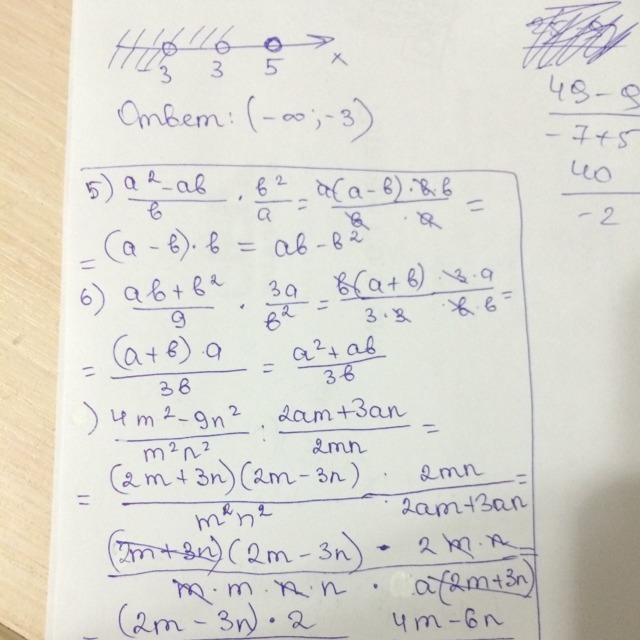 -3 3 5 x
Ответ: (-∞; -3)
5) (a² - ab)/b · b²/a = (a(a - b) · b · b)/(b · a) =
= (a - b) · b = ab - b²
6) (ab + b²)/9 · 3a/b² = (b(a + b) · 3 · a)/(3 · 3 · b · b) =
= ((a + b) · a)/3b = (a² + ab)/3b
) (4m² - 9n²)/(m²n²) : (2am + 3an)/(2mn) =
= ((2m + 3n)(2m - 3n))/(m²n²) · 2mn/(2am + 3an) =
((2m + 3n)(2m - 3n) · 2 m · n)/(m · m · n · n · a(2m + 3n)) =
= (2m - 3n) · 2 4m - 6n
49 - 9
-7 + 5
40
-2